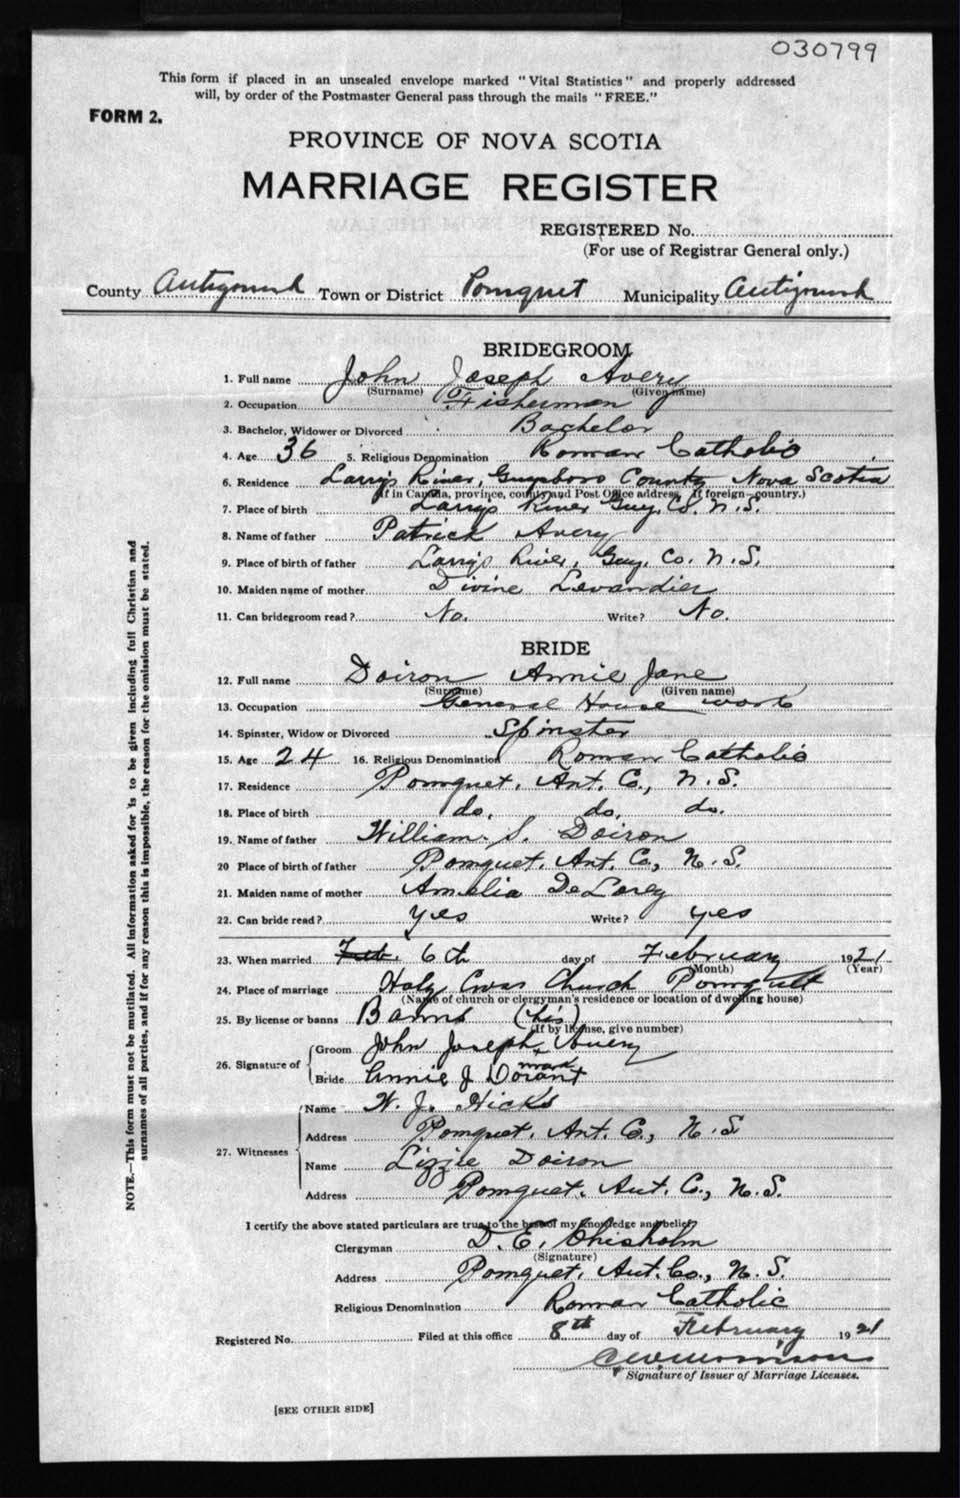 030799
This form if placed in an unsealed envelope marked "Vital Statistics" and properly addressed
will, by order of the Postmaster General pass through the mails "FREE."
FORM 2.
PROVINCE OF NOVA SCOTIA
MARRIAGE REGISTER
REGISTERED No.
(For use of Registrar General only.)
County Antigonish Town or District Pomquet Municipality Antigonish
BRIDEGROOM
1. Full name John Joseph Avery
(Surname) (Given name)
2. Occupation Fisherman
3. Bachelor, Widower or Divorced Bachelor
4. Age 36 5. Religious Denomination Roman Catholic
6. Residence Larrys River, Guysboro County Nova Scotia
(If in Canada, province, county and Post Office address, if foreign—country.)
7. Place of birth Larrys River Guy. Co. N.S.
8. Name of father Patrick Avery
9. Place of birth of father Larrys River, Guy. Co. N.S.
10. Maiden name of mother Divine Levandier
11. Can bridegroom read? No. Write? No.
BRIDE
12. Full name Doiron Annie Jane
(Surname) (Given name)
13. Occupation General House work
14. Spinster, Widow or Divorced Spinster
15. Age 24 16. Religious Denomination Roman Catholic
17. Residence Pomquet, Ant. Co., N.S.
18. Place of birth do, do, do.
19. Name of father William. S. Doiron
20 Place of birth of father Pomquet, Ant. Co., N.S.
21. Maiden name of mother Amelia DeLorey
22. Can bride read? yes Write? yes
23. When married Feb. 6th day of February 1921
(Month) (Year)
24. Place of marriage Holy Cross Church Pomquet
(Name of church or clergyman's residence or location of dwelling house)
25. By license or banns Banns (his)
(If by license, give number)
26. Signature of Groom John Joseph + Avery
mark
Bride Annie J Dorant
27. Witnesses Name W. J. Hicks
Address Pomquet, Ant. Co., N.S
Name Lizzie Doiron
Address Pomquet, Ant. Co., N.S.
I certify the above stated particulars are true to the best of my knowledge and belief.
Clergyman D. E. Chisholm
(Signature)
Address Pomquet, Ant. Co., N.S.
Religious Denomination Roman Catholic
Registered No. Filed at this office 8th day of February 1921
Signature of Issuer of Marriage Licenses.
[SEE OTHER SIDE]
NOTE.—This form must not be mutilated. All information asked for is to be given including full Christian and
surnames of all parties, and if for any reason this is impossible, the reason for the omission must be stated.